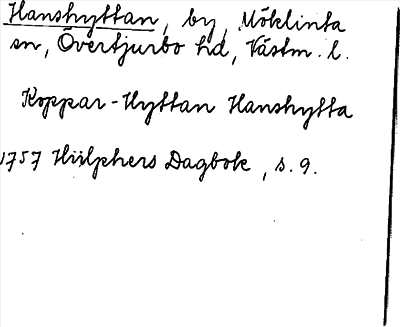 Hanshyttan, by, Möklinta
sn, Övertjurbo hd, Västm. l.
Koppar-Hyttan Hanshytta
1757 Hülphers Dagbok, s. 9.